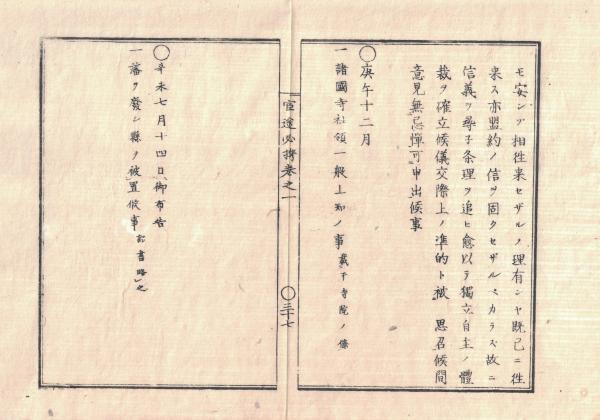 モ安ンゾ相往来セザルノ理有ンヤ既已ニ往
来ス亦盟約ノ信ヲ固クセザルベカラズ故ニ
信義ヲ尋子条理ヲ追ヒ愈以テ獨立自主ノ體
裁ヲ確立候儀交際上ノ準的ト被 思召候間
意見無忌憚可申出候事
〇庚午十二月
一諸國寺社領一般上知ノ事載于寺院ノ條
官途必携巻之一
〇三十七
〇辛未七月十四日御布告
一藩ヲ廢シ縣ヲ被置候事記書略之